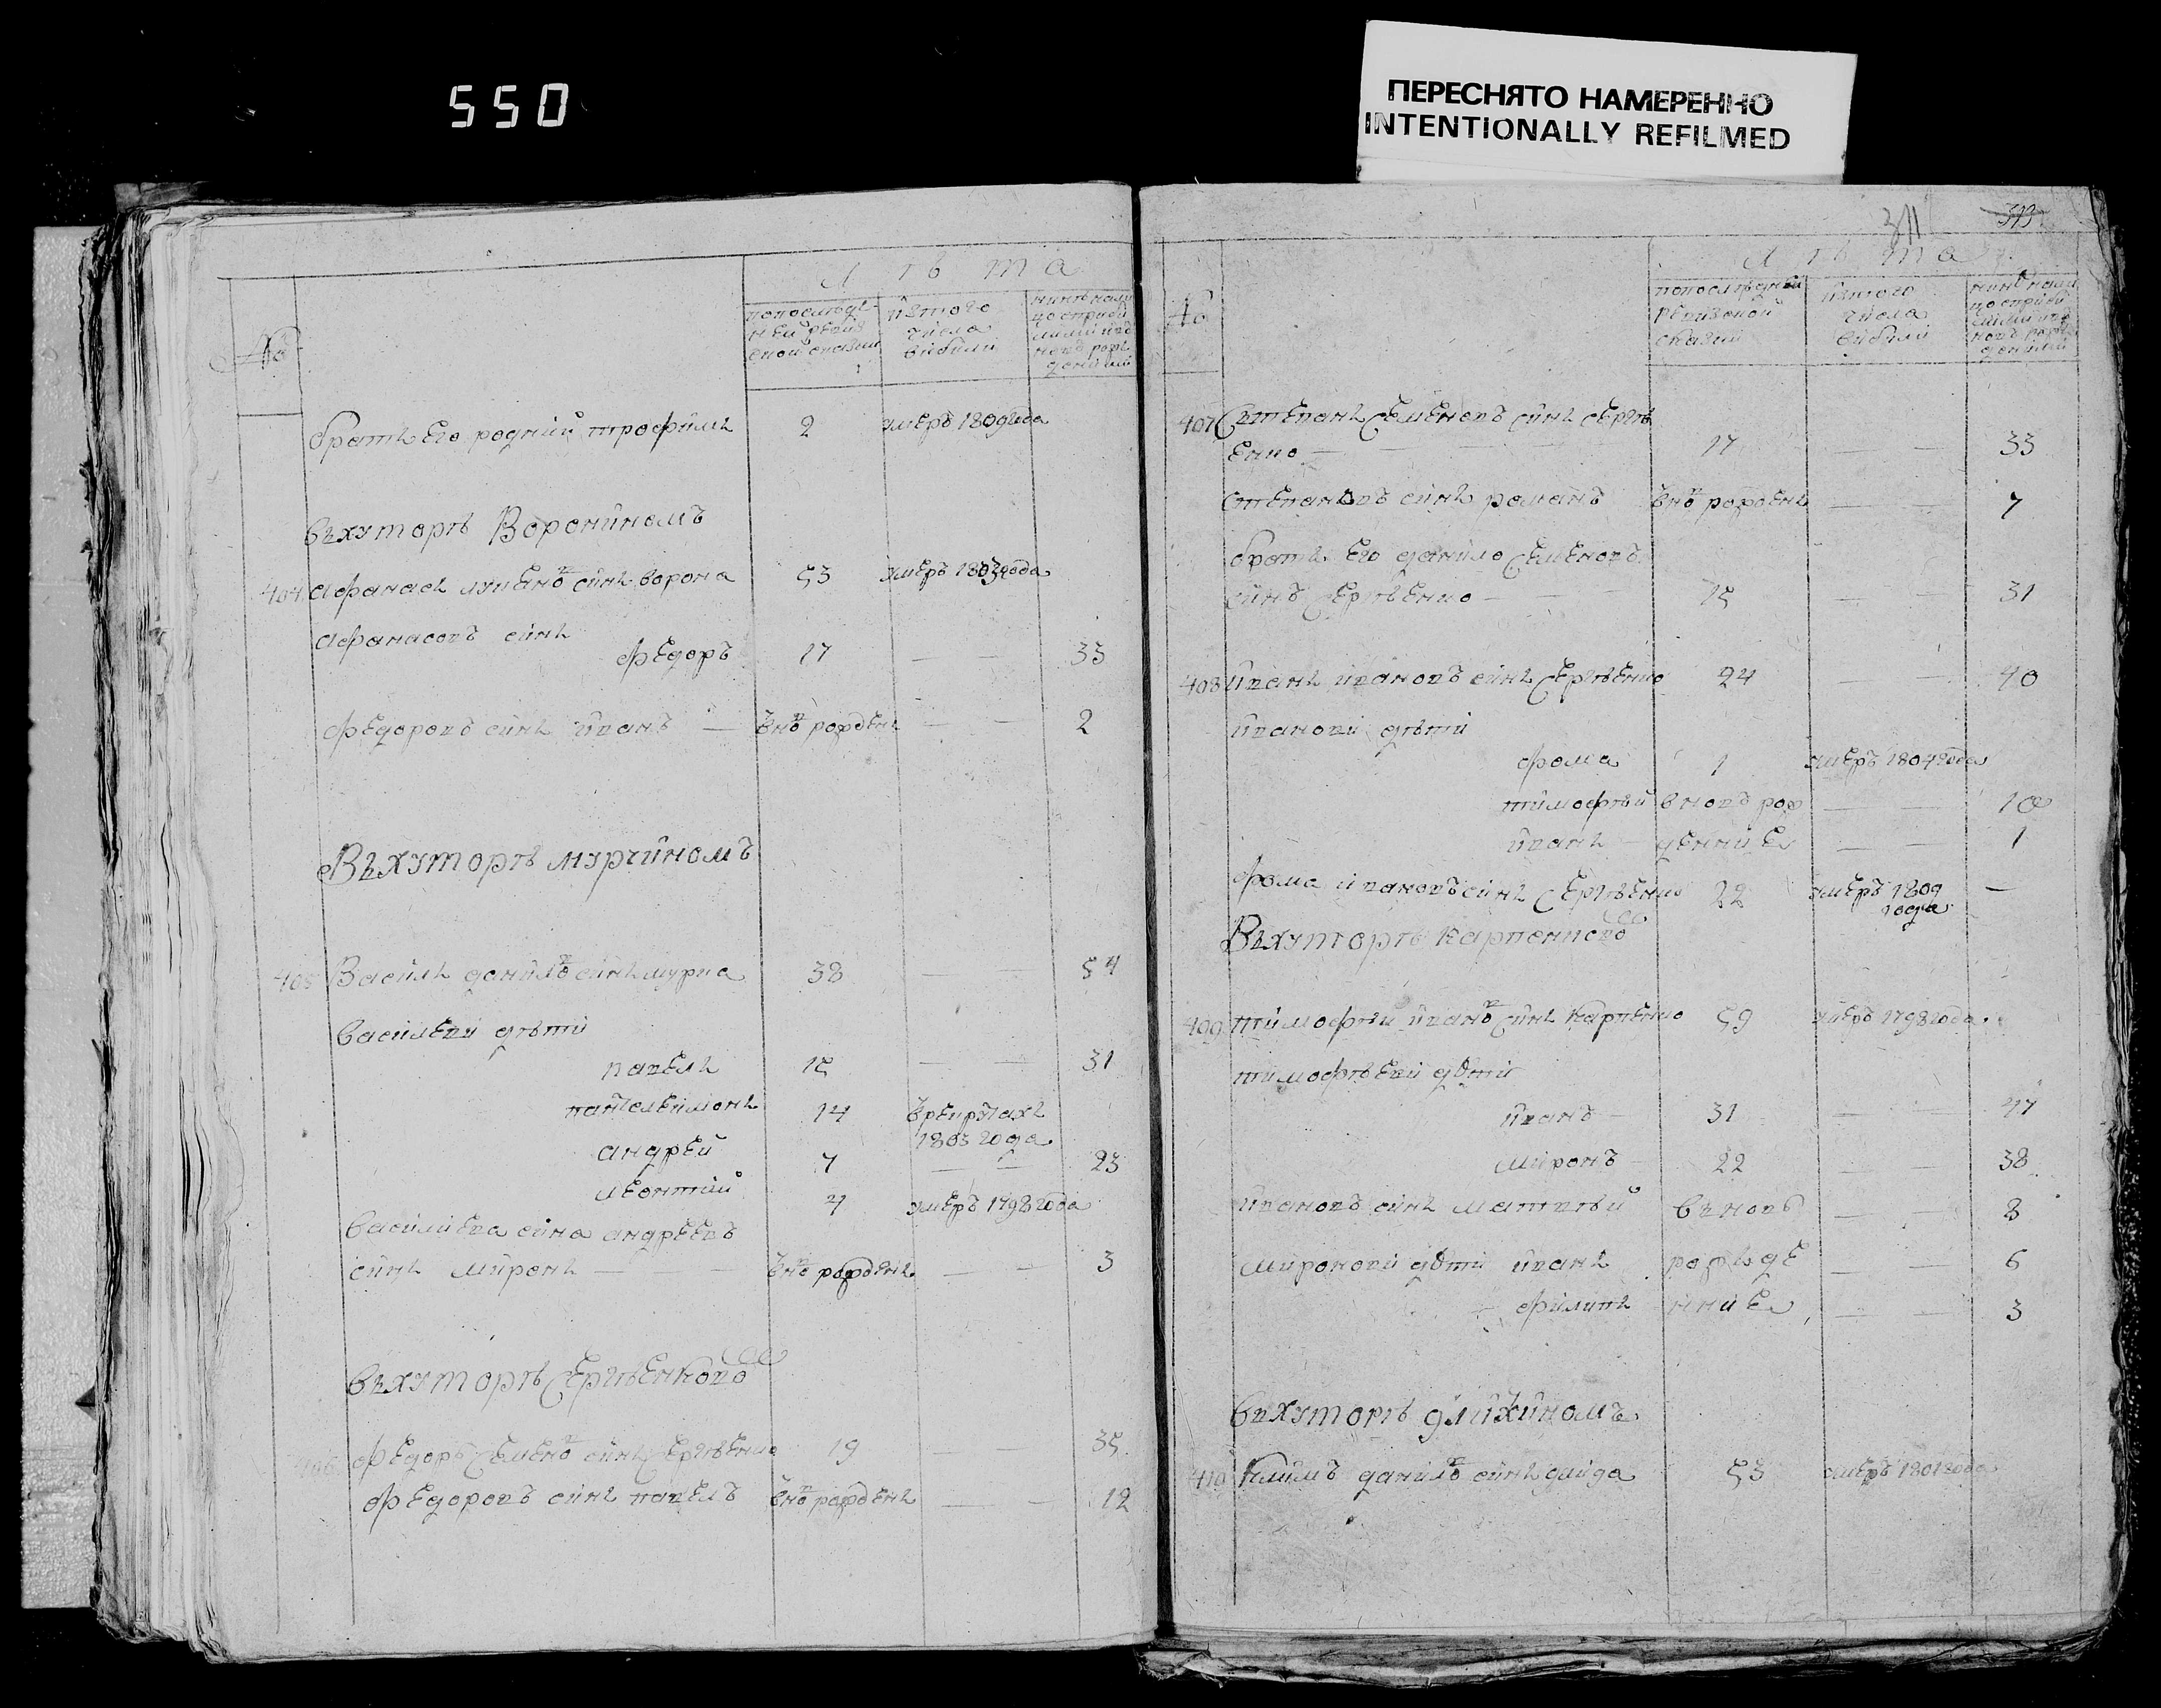 550
ПЕРЕСНЯТО НАМЕРЕННО
INTENTIONALLY REFILMED
Лѣта
№
попоследней ревизской сказки
изтого числа выбыли
братъ Его родний трофимъ 2 умеръ 1809 года
вхуторѣ Воронйномъ
404 Афанасъ синъ ворона 53 умеръ 1803 года
Афанасовъ синъ
федоръ 17 — — 33
федоровъ синъ иванъ — вновъ рожденъ — — 2
Въхуторѣ мурзйномъ
405 Василь данйловъ синъ мурза 38 — 54
василеви дѣти
павелъ 15 — — 31
пантелеймонъ 14 врекрутахъ
1803 года
андрей 7 — — 23
леонтий 4 умеръ 1798 года
василиева сина андреевъ
синъ миронъ — — вновъ рожденъ — — 3
вхуторѣ Сергѣенковѣ
406 федоръ Семеновъ синъ Сергѣенко 19 — 35
федоровъ синъ павелъ вновъ рожденъ — — 12
311 313
Лѣта
№
попоследней ревизской сказки
изтого числа выбыли
407 Степанъ Семеновъ синъ Сергѣ
енко — — 17 — — 33
Степановъ синъ романъ вновъ рожденъ — — 7
братъ Его данило Семеновъ
синъ Сергѣенко — — 15 — — 31
408 Иванъ ивановъ синъ Сергѣенко 24 — — 40
ивановы дѣти
фома 1 умеръ 1804 года
тимофѣй вновъ рож — — 10
иванъ — денние — — 1
фома ивановъ синъ Сергѣенко 22 умеръ 1809 —
года
Вхуторѣ Карпенковѣ
409 тимофѣй ивановъ синъ Карпенко 59 умеръ 1798 года
тимофѣеви дѣти
иванъ 31 — — 47
миронъ 22 — — 38
ивановъ синъ матвѣй вьновъ — — 8
миронови дѣти иванъ рожде — — 6
филипъ нние — — 3
вхуторѣ длйжйномъ
410 Климъ данйловъ синъ 53 умеръ 1801 года